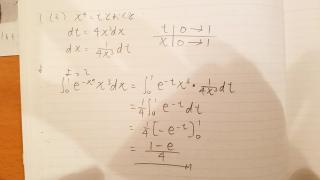 1 (2) x⁴ = t とおくと
dt = 4x³dx
dx = 1/4x³ dt
t | 0 → 1
x | 0 → 1
∫₀¹ e^{-x⁴} x³dx = ∫₀¹ e^{-t} x³ · 1/4x³ dt
= 1/4 ∫₀¹ e^{-t} dt
= 1/4 [-e^{-t}]₀¹
= 1-e/4